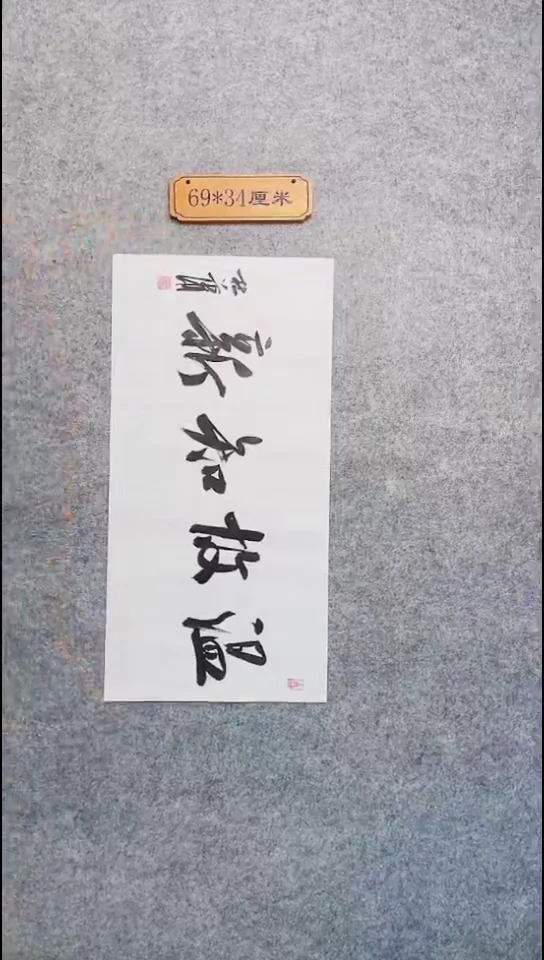 69*34厘米
温故知新